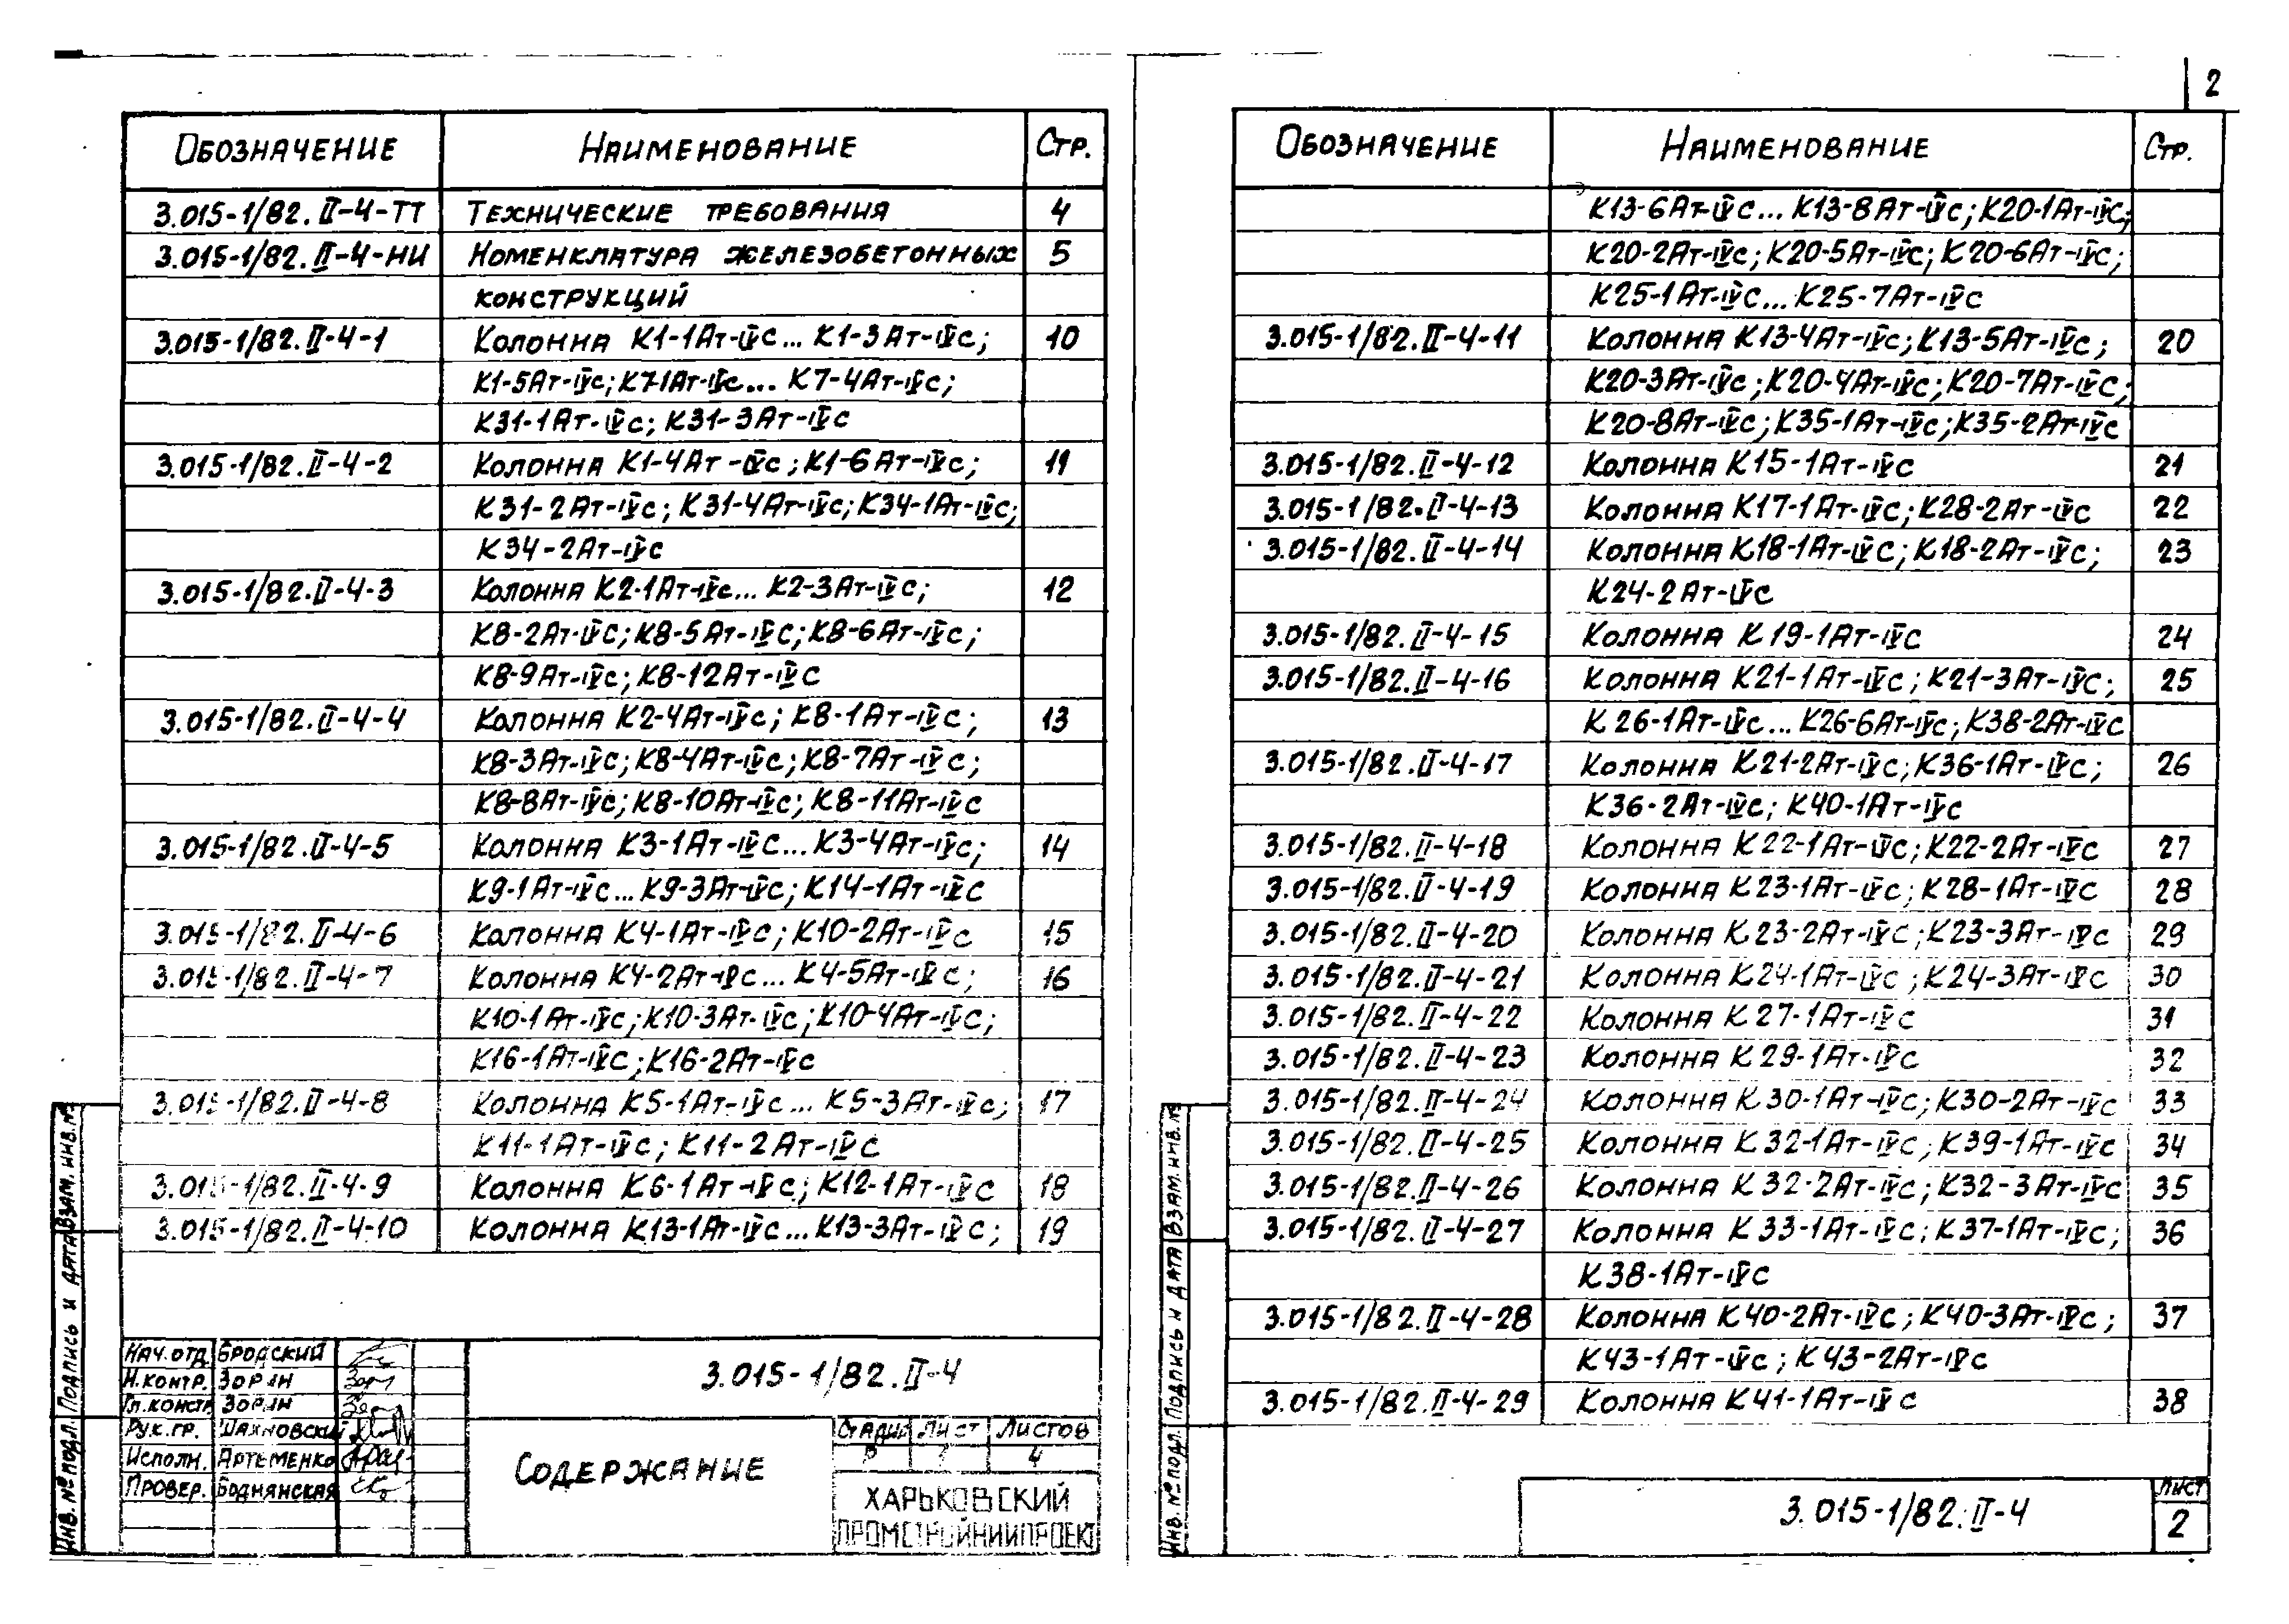 2
Обозначение Наименование Стр.
3.015-1/82.II-4-ТТ Технические требования 4
3.015-1/82.II-4-НИ Номенклатура железобетонных 5
конструкций
3.015-1/82.II-4-1 Колонна К1-1Ат-IVс... К1-3Ат-IVс; 10
К1-5Ат-IVс; К7-1Ат-IVс... К7-4Ат-IVс;
К31-1Ат-IVс; К31-3Ат-IVс
3.015-1/82.II-4-2 Колонна К1-4Ат-IVс; К1-6Ат-IVс; 11
К31-2Ат-IVс; К31-4Ат-IVс; К34-1Ат-IVс;
К34-2Ат-IVс
3.015-1/82.II-4-3 Колонна К2-1Ат-IVс... К2-3Ат-IVс; 12
К8-2Ат-IVс; К8-5Ат-IVс; К8-6Ат-IVс;
К8-9Ат-IVс; К8-12Ат-IVс
3.015-1/82.II-4-4 Колонна К2-4Ат-IVс; К8-1Ат-IVс; 13
К8-3Ат-IVс; К8-4Ат-IVс; К8-7Ат-IVс;
К8-8Ат-IVс; К8-10Ат-IVс; К8-11Ат-IVс
3.015-1/82.II-4-5 Колонна К3-1Ат-IVс... К3-4Ат-IVс; 14
К9-1Ат-IVс... К9-3Ат-IVс; К14-1Ат-IVс
3.015-1/82.II-4-6 Колонна К4-1Ат-IVс; К10-2Ат-IVс 15
3.015-1/82.II-4-7 Колонна К4-2Ат-IVс... К4-5Ат-IVс; 16
К10-1Ат-IVс; К10-3Ат-IVс; К10-4Ат-IVс;
К16-1Ат-IVс; К16-2Ат-IVс
3.015-1/82.II-4-8 Колонна К5-1Ат-IVс... К5-3Ат-IVс; 17
К11-1Ат-IVс; К11-2Ат-IVс
3.015-1/82.II-4-9 Колонна К6-1Ат-IVс; К12-1Ат-IVс 18
3.015-1/82.II-4-10 Колонна К13-1Ат-IVс... К13-3Ат-IVс; 19
Взам. инв. №
Подпись и дата
Инв. № подл.
Нач. отд. Бродский
Н. контр. Зорин
Гл. констр Зорин
Рук. гр. Шахновский
Исполн. Артеменко
Провер. Боднянская
3.015-1/82.II-4
Содержание
Стадия Лист Листов
Р 1 4
ХАРЬКОВСКИЙ
ПРОМСТРОЙНИИПРОЕКТ
Обозначение Наименование Стр.
К13-6Ат-IVс... К13-8Ат-IVс; К20-1Ат-IVс;
К20-2Ат-IVс; К20-5Ат-IVс; К20-6Ат-IVс;
К25-1Ат-IVс... К25-7Ат-IVс
3.015-1/82.II-4-11 Колонна К13-4Ат-IVс; К13-5Ат-IVс; 20
К20-3Ат-IVс; К20-4Ат-IVс; К20-7Ат-IVс;
К20-8Ат-IVс; К35-1Ат-IVс; К35-2Ат-IVс
3.015-1/82.II-4-12 Колонна К15-1Ат-IVс 21
3.015-1/82.II-4-13 Колонна К17-1Ат-IVс; К28-2Ат-IVс 22
3.015-1/82.II-4-14 Колонна К18-1Ат-IVс; К18-2Ат-IVс; 23
К24-2Ат-IVс
3.015-1/82.II-4-15 Колонна К19-1Ат-IVс 24
3.015-1/82.II-4-16 Колонна К21-1Ат-IVс; К21-3Ат-IVс; 25
К26-1Ат-IVс... К26-6Ат-IVс; К38-2Ат-IVс
3.015-1/82.II-4-17 Колонна К21-2Ат-IVс; К36-1Ат-IVс; 26
К36-2Ат-IVс; К40-1Ат-IVс
3.015-1/82.II-4-18 Колонна К22-1Ат-IVс; К22-2Ат-IVс 27
3.015-1/82.II-4-19 Колонна К23-1Ат-IVс; К28-1Ат-IVс 28
3.015-1/82.II-4-20 Колонна К23-2Ат-IVс; К23-3Ат-IVс 29
3.015-1/82.II-4-21 Колонна К24-1Ат-IVс; К24-3Ат-IVс 30
3.015-1/82.II-4-22 Колонна К27-1Ат-IVс 31
3.015-1/82.II-4-23 Колонна К29-1Ат-IVс 32
3.015-1/82.II-4-24 Колонна К30-1Ат-IVс; К30-2Ат-IVс 33
3.015-1/82.II-4-25 Колонна К32-1Ат-IVс; К39-1Ат-IVс 34
3.015-1/82.II-4-26 Колонна К32-2Ат-IVс; К32-3Ат-IVс 35
3.015-1/82.II-4-27 Колонна К33-1Ат-IVс; К37-1Ат-IVс; 36
К38-1Ат-IVс
3.015-1/82.II-4-28 Колонна К40-2Ат-IVс; К40-3Ат-IVс; 37
К43-1Ат-IVс; К43-2Ат-IVс
3.015-1/82.II-4-29 Колонна К41-1Ат-IVс 38
Взам. инв. №
Подпись и дата
Инв. № подл.
3.015-1/82.II-4
Лист
2